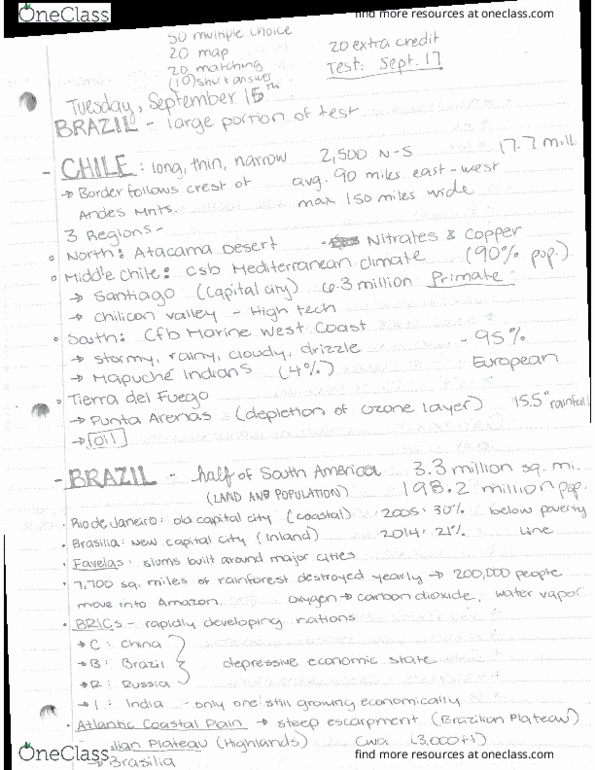 OneClass find more resources at oneclass.com
50 multiple choice
20 map 20 extra credit
20 matching Test: Sept. 17
(10) short answer
Tuesday, September 15th
BRAZIL - large portion of test
- CHILE: long, thin, narrow 2,500 N-S 17.7 mill
→ Border follows crest of avg. 90 miles east-west
Andes Mnts. max 150 miles wide
3 Regions -
North: Atacama Desert - Nitrates & Copper
Middle Chile: Csb Mediterranean climate (90% pop.)
→ Santiago (capital city) 6.3 million Primate
→ Chilicon valley - High tech
South: Cfb Marine West Coast
→ stormy, rainy, cloudy, drizzle - 95%
→ Mapuché Indians (4%) European
Tierra del Fuego
→ Punta Arenas (depletion of ozone layer) 15.5" rainfall
→ oil
- BRAZIL - half of South America 3.3 million sq. mi.
(LAND AND POPULATION) 198.2 million pop.
• Rio de Janeiro: old capital city (coastal) 2005: 30% below poverty
• Brasilia: new capital city (inland) 2014: 21% line
• Favelas: slums built around major cities
• 7,700 sq. miles of rainforest destroyed yearly → 200,000 people
move into Amazon. oxygen → carbon dioxide, water vapor
• BRICs - rapidly developing nations
→ C: China
→ B: Brazil } depressive economic state
→ R: Russia
→ I: India - only one still growing economically
• Atlantic Coastal Plain → steep escarpment (Brazilian Plateau)
lian Plateau (Highlands) Cwa (3,000ft)
→ Brasilia
OneClass find more resources at oneclass.com